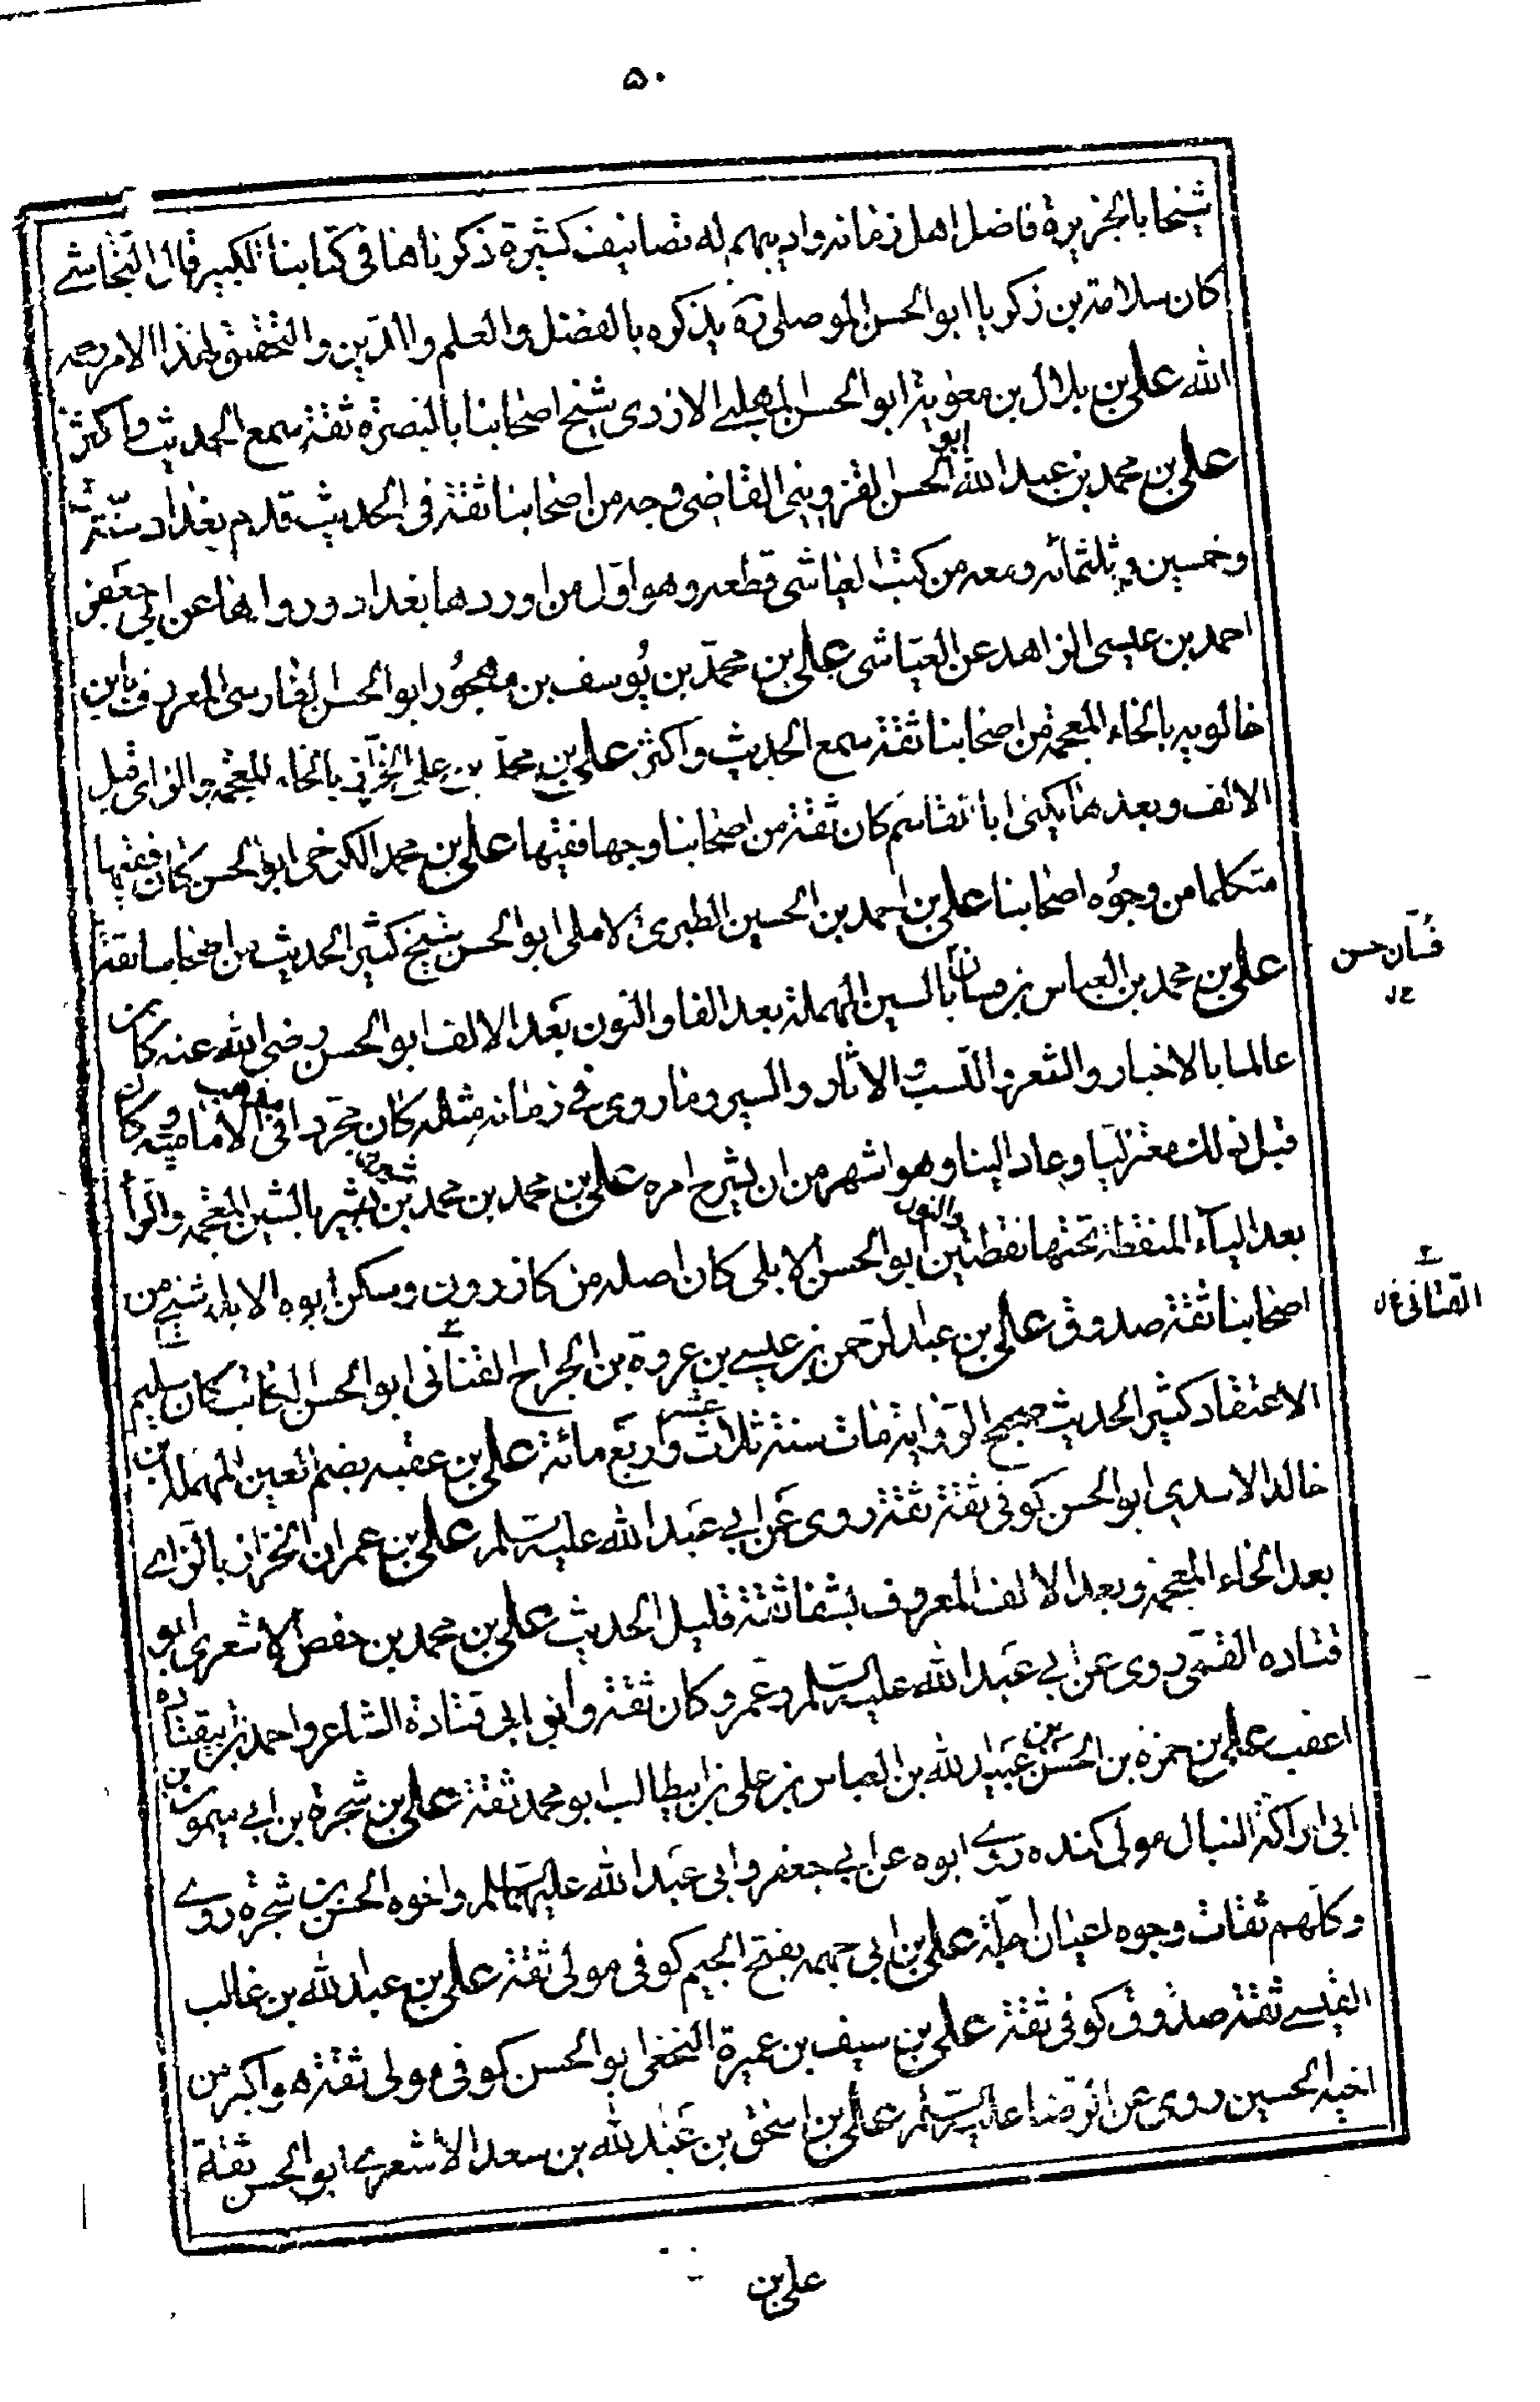 ۵۰
شيخا بالجزيرة فاضل اهل زمانه واديبهم له تصانيف كثيرة ذكرناها في كتابنا الكبير قال النجاشي
كان سلامة بن زكريا ابو الحسن الموصلي ره يذكره بالفضل والعلم والدين والتحقيق لهذا الامر رحمه
الله علي بن بلال بن معوية ابو الحسن المهلبي الازدي شيخ اصحابنا بالبصرة ثقة سمع الحديث واكثر
علي بن محمد بن عبد الله ابو الحسن القزويني القاضي وجه من اصحابنا ثقة في الحديث قدم بغداد سنة ست
وخمسين وثلثمائه ومعه من كتب العياشي قطعه وهو اول من اوردها بغداد ورواها عن ابي جعفر
احمد بن عيسى الزاهد عن العياشي علي بن محمد بن يوسف بن مهجور ابو الحسن الفارسي المعروف بابن
خالويه بالخاء المعجمة من اصحابنا ثقة سمع الحديث واكثر علي بن محمد بن علي الخزاز بالخاء المعجمه والزاي قبل
الالف وبعدها يكنى ابا القاسم كان ثقة من اصحابنا وجها فقيها علي بن محمد الكرخي ابو الحسن كان فقيها
متكلما من وجوه اصحابنا علي بن احمد بن الحسين الطبري الاملي ابو الحسن شيخ كثير الحديث من اصحابنا ثقة
علي بن محمد بن العباس بن فسان بالسين المهملة بعد الفا والنون بعد الالف ابو الحسن رضي الله عنه كان
فسان حسن
عالما بالاخبار والشعر والنسب والاثار والسير وما روى في زمانه مثله كان مجردا في مذهب الامامية وكان
قبل ذلك معتزليا وعاد الينا وهو اشهر من ان يشرح امره علي بن محمد بن محمد بن شيران بالشين المعجمه والرا
بعد الياء المنقطة تحتها نقطتين والنون ابو الحسن الابلي كان اصله من كازرون وسكن ابوه الابله شيخ من
اصحابنا ثقة صدوق علي بن عبد الرحمن بن عيسى بن عروة بن الجراح القناني ابو الحسن الكاتب كان سليم
القناني
الاعتقاد كثير الحديث صحيح الرواية مات سنة ثلاث عشر واربع مائة علي بن عقبه بضم العين المهمله بن
خالد الاسدي ابو الحسن كوفي ثقة ثقة روى عن ابي عبد الله عليه السلم علي بن عمران الخزاز بالزاي
بعد الخاء المعجمه وبعد الالف المعروف بشفا ثقة قليل الحديث علي بن محمد بن حفص الاشعري ابو
قتاده القمي روى عن ابي عبد الله عليه السلم وعمر وكان ثقة وابن ابي قتادة الشاعر واحمد بن ابي قتاده
اعقب علي بن حمزه بن الحسن بن عبيد الله بن العباس بن علي بن ابيطالب ابو محمد ثقة علي بن شجرة بن ميمون بن
ابي اراكة النبال مولى كنده روى ابوه عن ابي جعفر وابي عبد الله عليهما السلم واخوه الحسن بن شجرة روى
وكلهم ثقات وجوه اعيان اجلة علي بن ابي جهمه بفتح الجيم كوفي مولى ثقة علي بن عبد الله بن غالب
القيسي ثقة صدوق كوفي ثقة علي بن سيف بن عميرة النخعي ابو الحسن كوفي مولى ثقة هو اكبر من
اخيه الحسين روى عن الرضا عليه السلم علي بن اسحق بن عبد الله بن سعد الاشعري ابو الحسن ثقة
علي بن